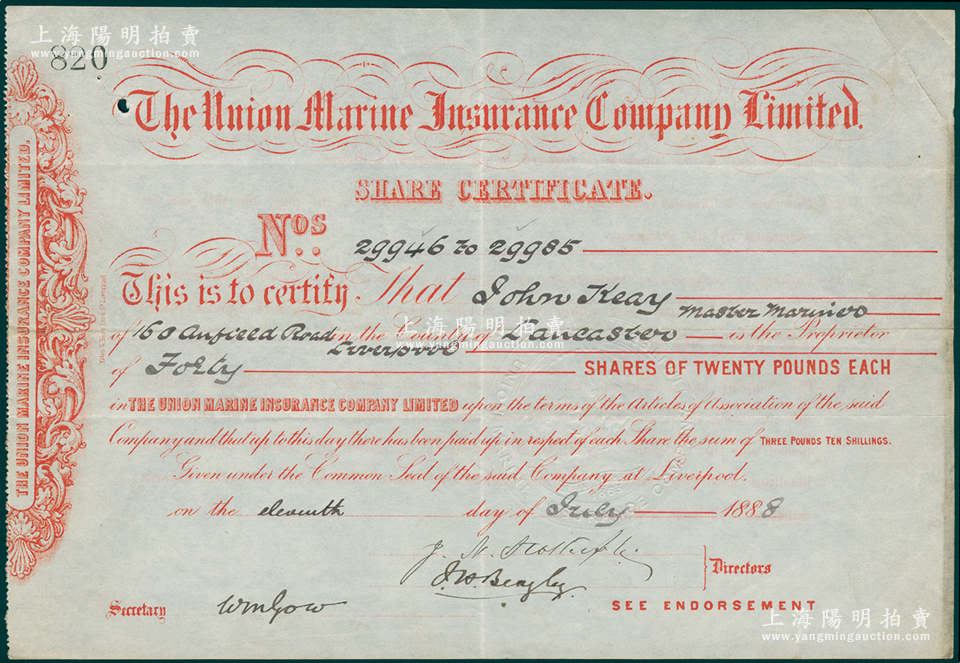 上海陽明拍賣
www.yangmingauction.com
820
The Union Marine Insurance Company Limited.
SHARE CERTIFICATE.
Nos 29946 to 29985
This is to certify That John Keay Master Mariner
of 160 Anfield Road Liverpool in the County of Lancaster is the Proprietor
of Forty SHARES OF TWENTY POUNDS EACH
in THE UNION MARINE INSURANCE COMPANY LIMITED upon the terms of the Articles of Association of the said
Company and that up to this day there has been paid up in respect of each Share the sum of THREE POUNDS TEN SHILLINGS.
Given under the Common Seal of the said Company at Liverpool,
on the eleventh day of July 1888
Directors
Secretary Wm Gow
SEE ENDORSEMENT
THE UNION MARINE INSURANCE COMPANY LIMITED.
上海陽明拍賣
www.yangmingauction.com
上海陽明拍賣
www.yangmingauction.com